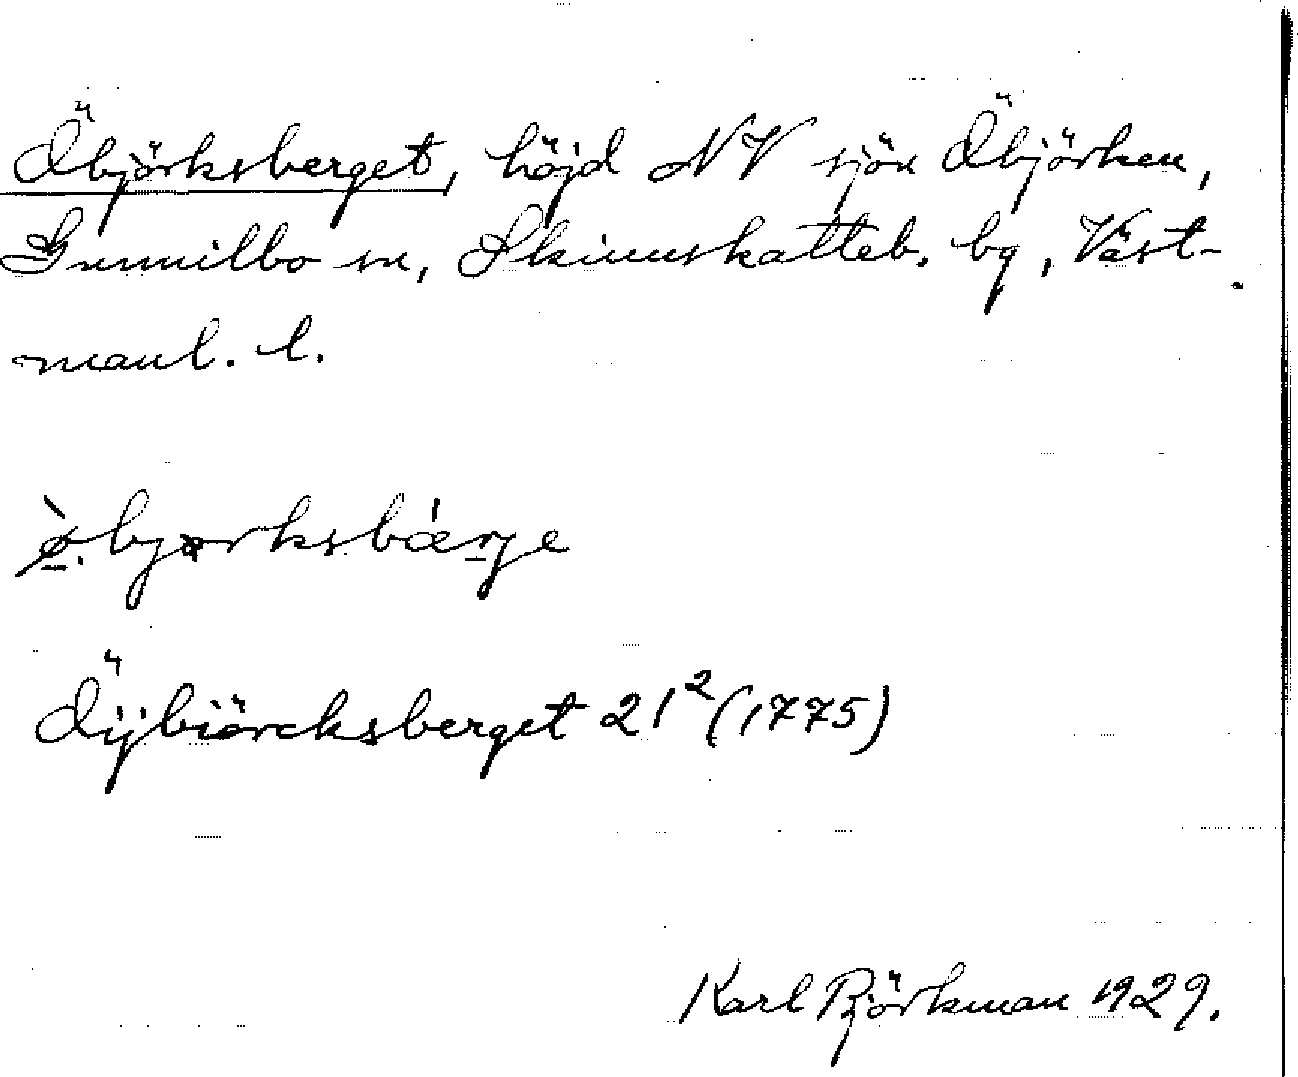 Öbjörksberget, höjd NV sjön Öbjörken,
Gunnilbo sn, Skinnskatteb. bg, Väst-
manl. l.
ø̀.bjørksbǽrje
Öÿbiörcksberget 21²(1775)
Karl Björkman 1929.